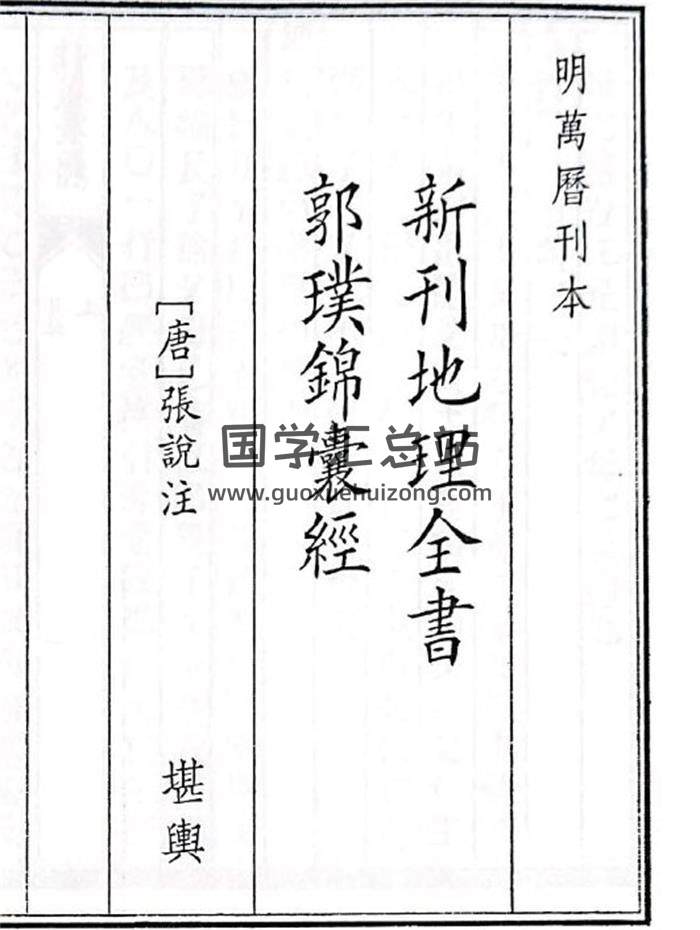 明萬曆刊本
新刊地理全書
郭璞錦囊經
[唐]張說注
堪輿
国学汇总站
www.guoxuehuizong.com